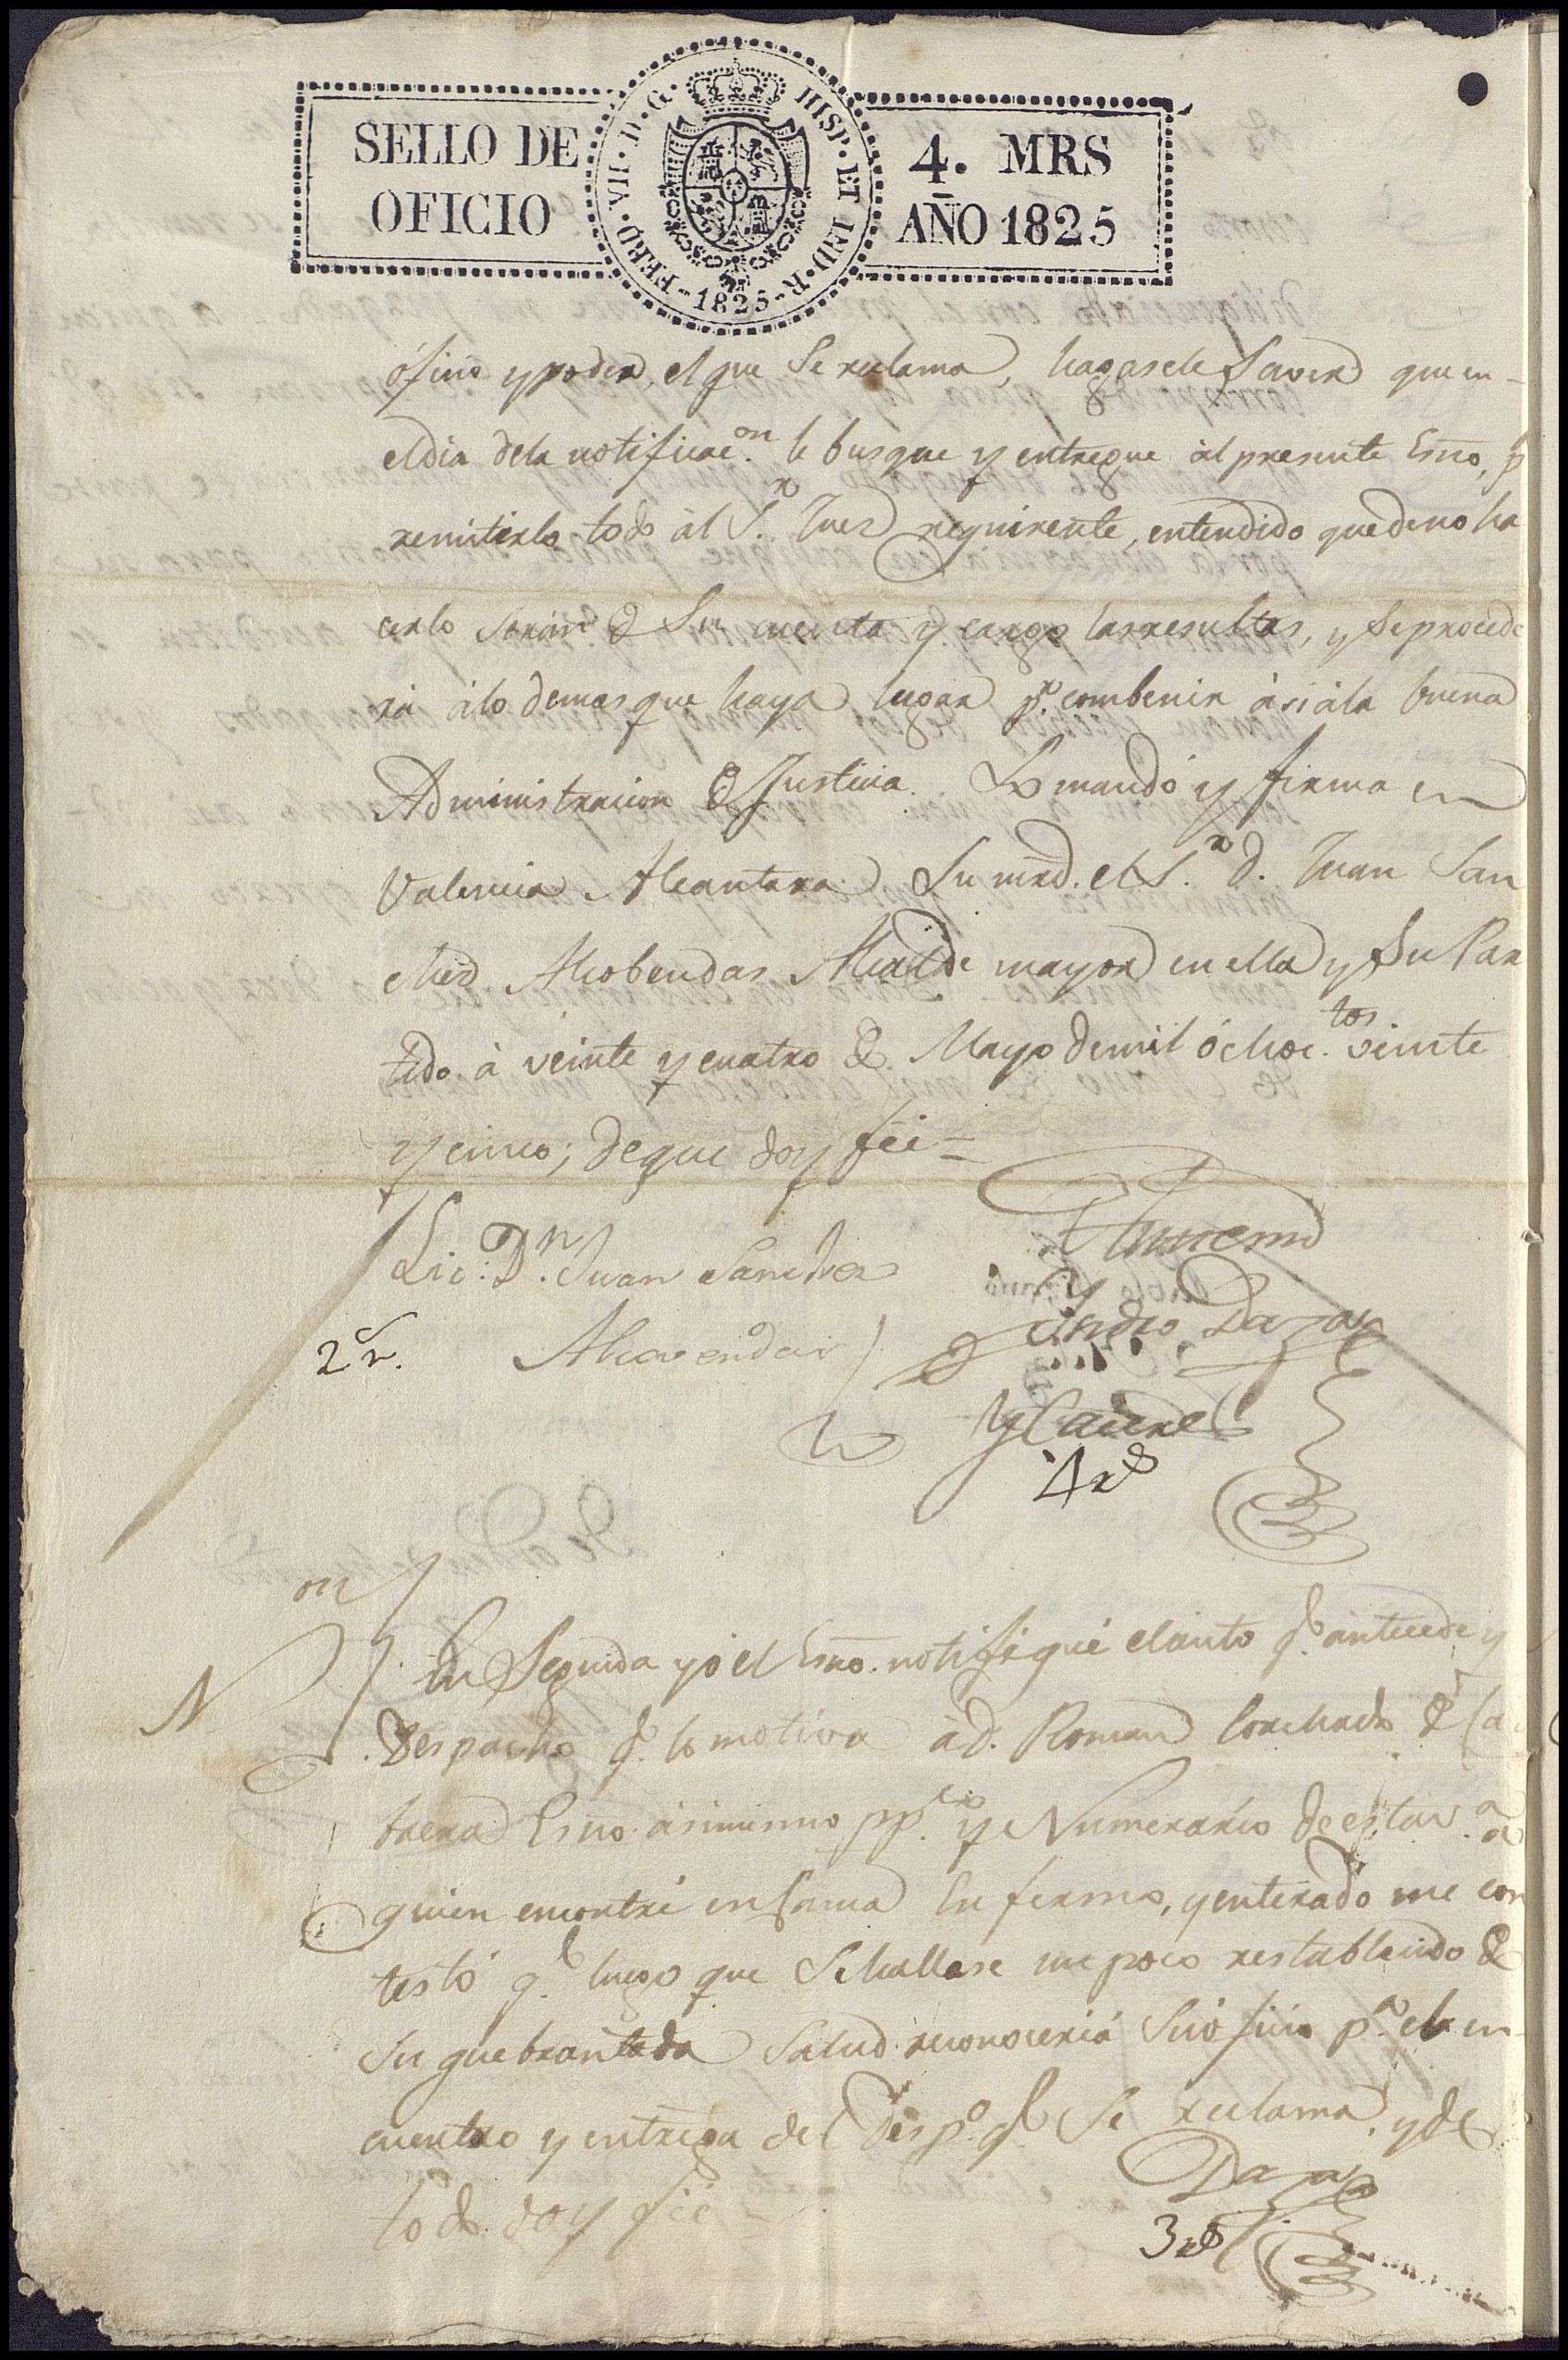 SELLO DE
OFICIO
FERD · VII · D · G · HISP · ET IND · R · 1825
4. MRS
AÑO 1825
óficio y poder, el que Se reclama, hagasele Saver que en
el dia dela notificac.on le busque y entregue àl presente Esno, p
remitirlo todo àl S.r Juez requirente, entendido que deno ha
cerlo Seràn de Su cuenta y cargo las resultas, y Seprocede
rà àlo demas que haya lugar p.r combenir àsi àla buena
Administracion de Justicia. Lo mandó y firma en
Valencia Alcantara Su mrd. el S.r d. Juan San
chez Alcobendas Alcalde mayor en ella y Su Par
tido à veinte y cuatro de Mayo demil óchoc.tos veinte
y cinco; deque doy feè=
Lic: D.n Juan Sanchez
Alcovendas
2 r.
Ysidro Daza
y Caceres
4 rs
N on
En Seguida yo el Esno. notifiqué elauto q.e antecede y
Despacho q.e lo motiva à d. Roman Corchado de Ca
brera Esno. àsimismo pp.co y Numerario de esta v.a à
quien encontré en Cama Enfermo, y enterado me con
testó q.e luego que Se hallase un poco restablecido de
Su quebrantada Salud reconoceria Suóficio p.a el en
cuentro y entrega del Desp.o q.e Se reclama, y de
todo doy fèe=
Daza
3 rs